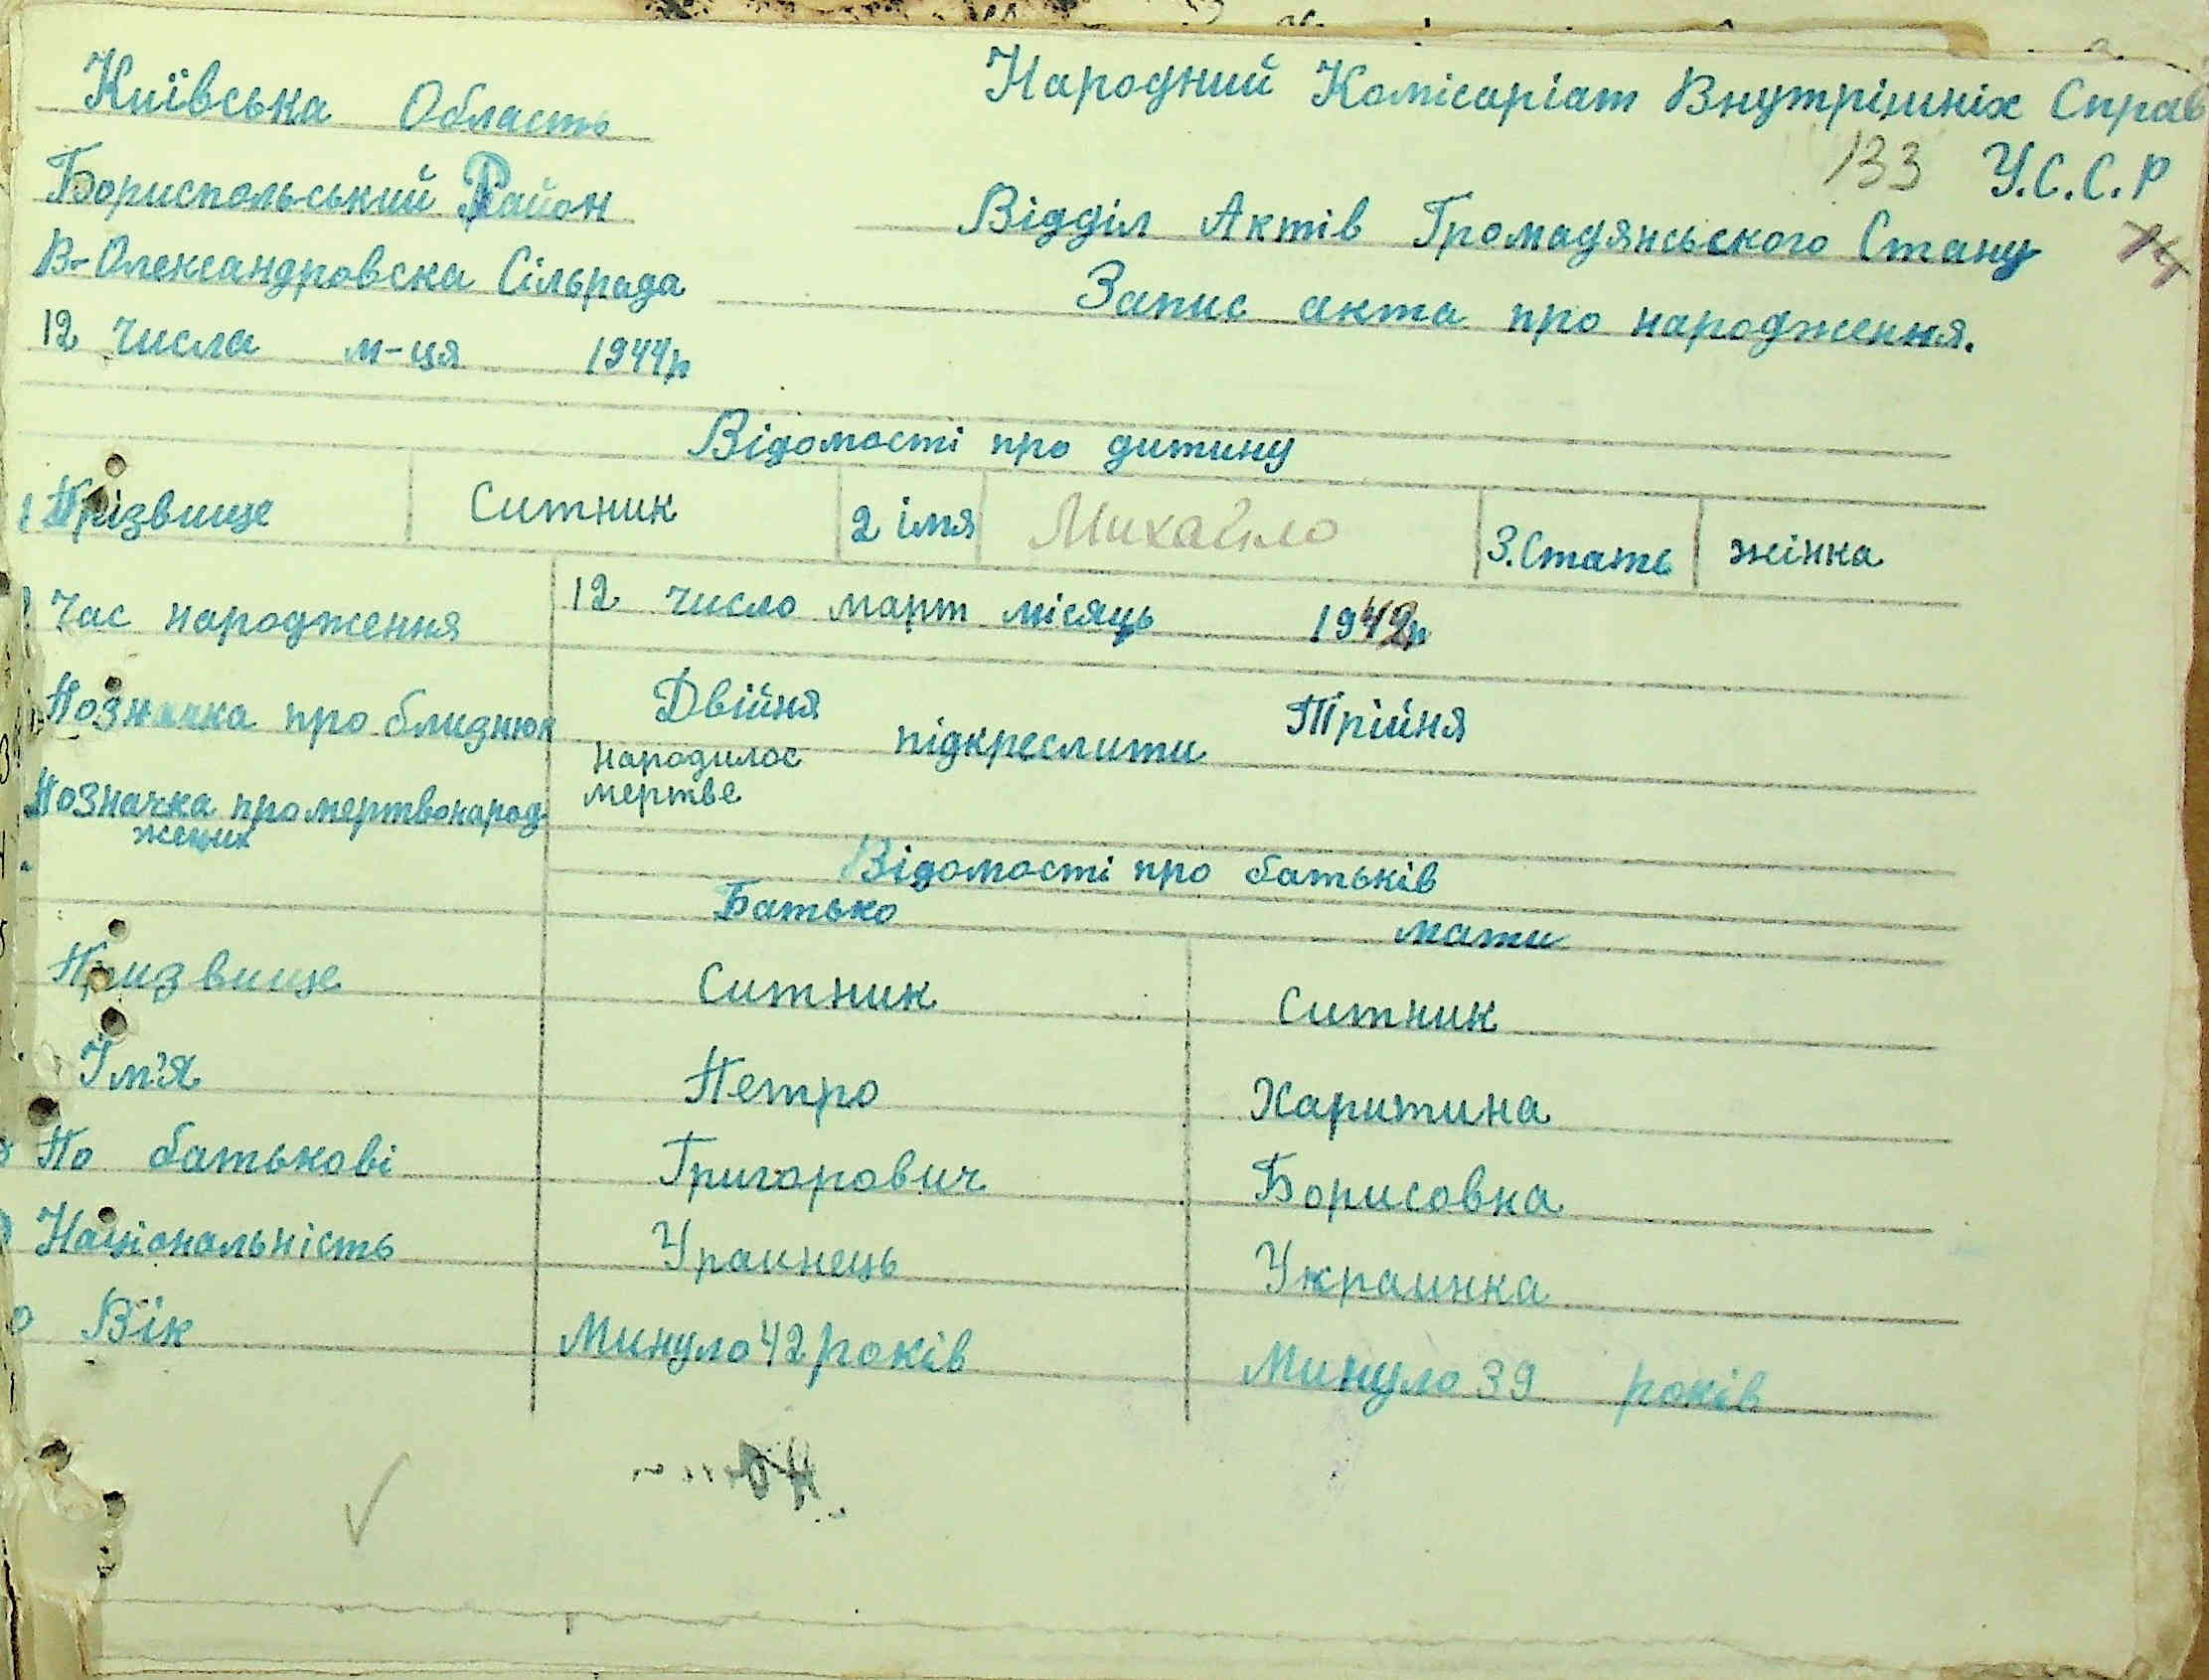 Київська Область
Народний Комісаріат Внутрішніх Справ
133 У.С.С.Р
Бориспольський Район
Відділ Актів Громадянського Стану
В-Олександровска Сільрада
Запис акта про народження.
12 числа м-ця 1944р
Відомості про дитину
1 Прізвище Ситник 2 імя Михайло 3. Стать жінка
Час народження 12 число март місяць 1942р
Позначка про близнюк Двійня підкреслити Трійня
Позначка про мертвонарод-
жених
народилос
мертве
Відомості про батьків
Батько мати
Призвище Ситник Ситник
Ім'я Петро Харитина
По батькові Григорович Борисовна
Національність Ураинець Украинка
Вік Минуло 42 років Минуло 39 років